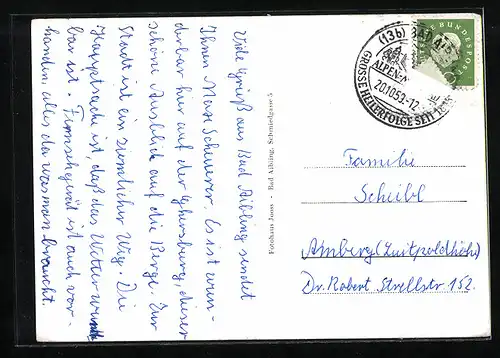 Viele Grüße aus Bad Aibling sendet
Ihnen Max Scheuerer. Es ist wun-
derbar hier auf der Ghersburg, dieser
schöne Ausblick auf die Berge. Zur
Stadt ist ein ziemlicher Weg. Die
Hauptsache ist, daß das Wetter wunder
bar ist. Fernsehgerät ist auch vor-
handen alles da was man braucht.
Fotohaus Jooss - Bad Aibling, Schmiedgasse 5
(13b) BAD
ALPEN-
20.10.59.-12
GROSSE HEILERFOLGE SEIT
BUNDESPOST
Familie
Scheibl
Amberg (Luitpoldhöhe)
Dr. Robert Strellstr 152.